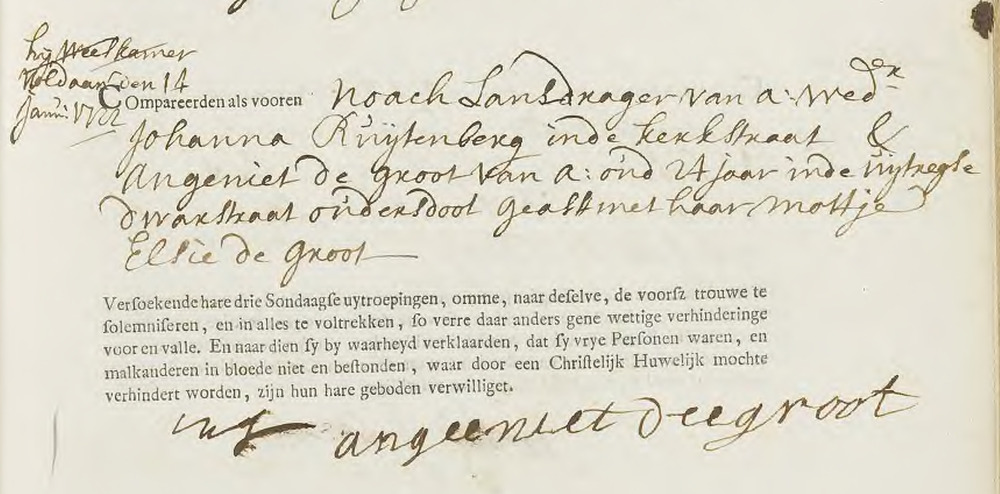 hij Weeskamer
voldaan den 14
Januari: 1722
COmpareerden als vooren Noach Lansdrager van a: wedr
der
Johanna Ruijtenberg inde kerkstraat &
Angeniet de Groot van a: oud 24 jaar inde uijtregse
dwarstraat ouders doot geast met haar mottje
Elsie de Groot
Verſoekende hare drie Sondaagſe uytroepingen, omme, naar deſelve, de voorſz trouwe te
ſolemniſeren, en in alles te voltrekken, ſo verre daar anders gene wettige verhinderinge
voor en valle. En naar dien ſy by waarheyd verklaarden, dat ſy vrye Perſonen waren, en
malkanderen in bloede niet en beſtonden, waar door een Chriſtelijk Huwelijk mochte
verhindert worden, zijn hun hare geboden verwilliget.
angeeniet dee groot